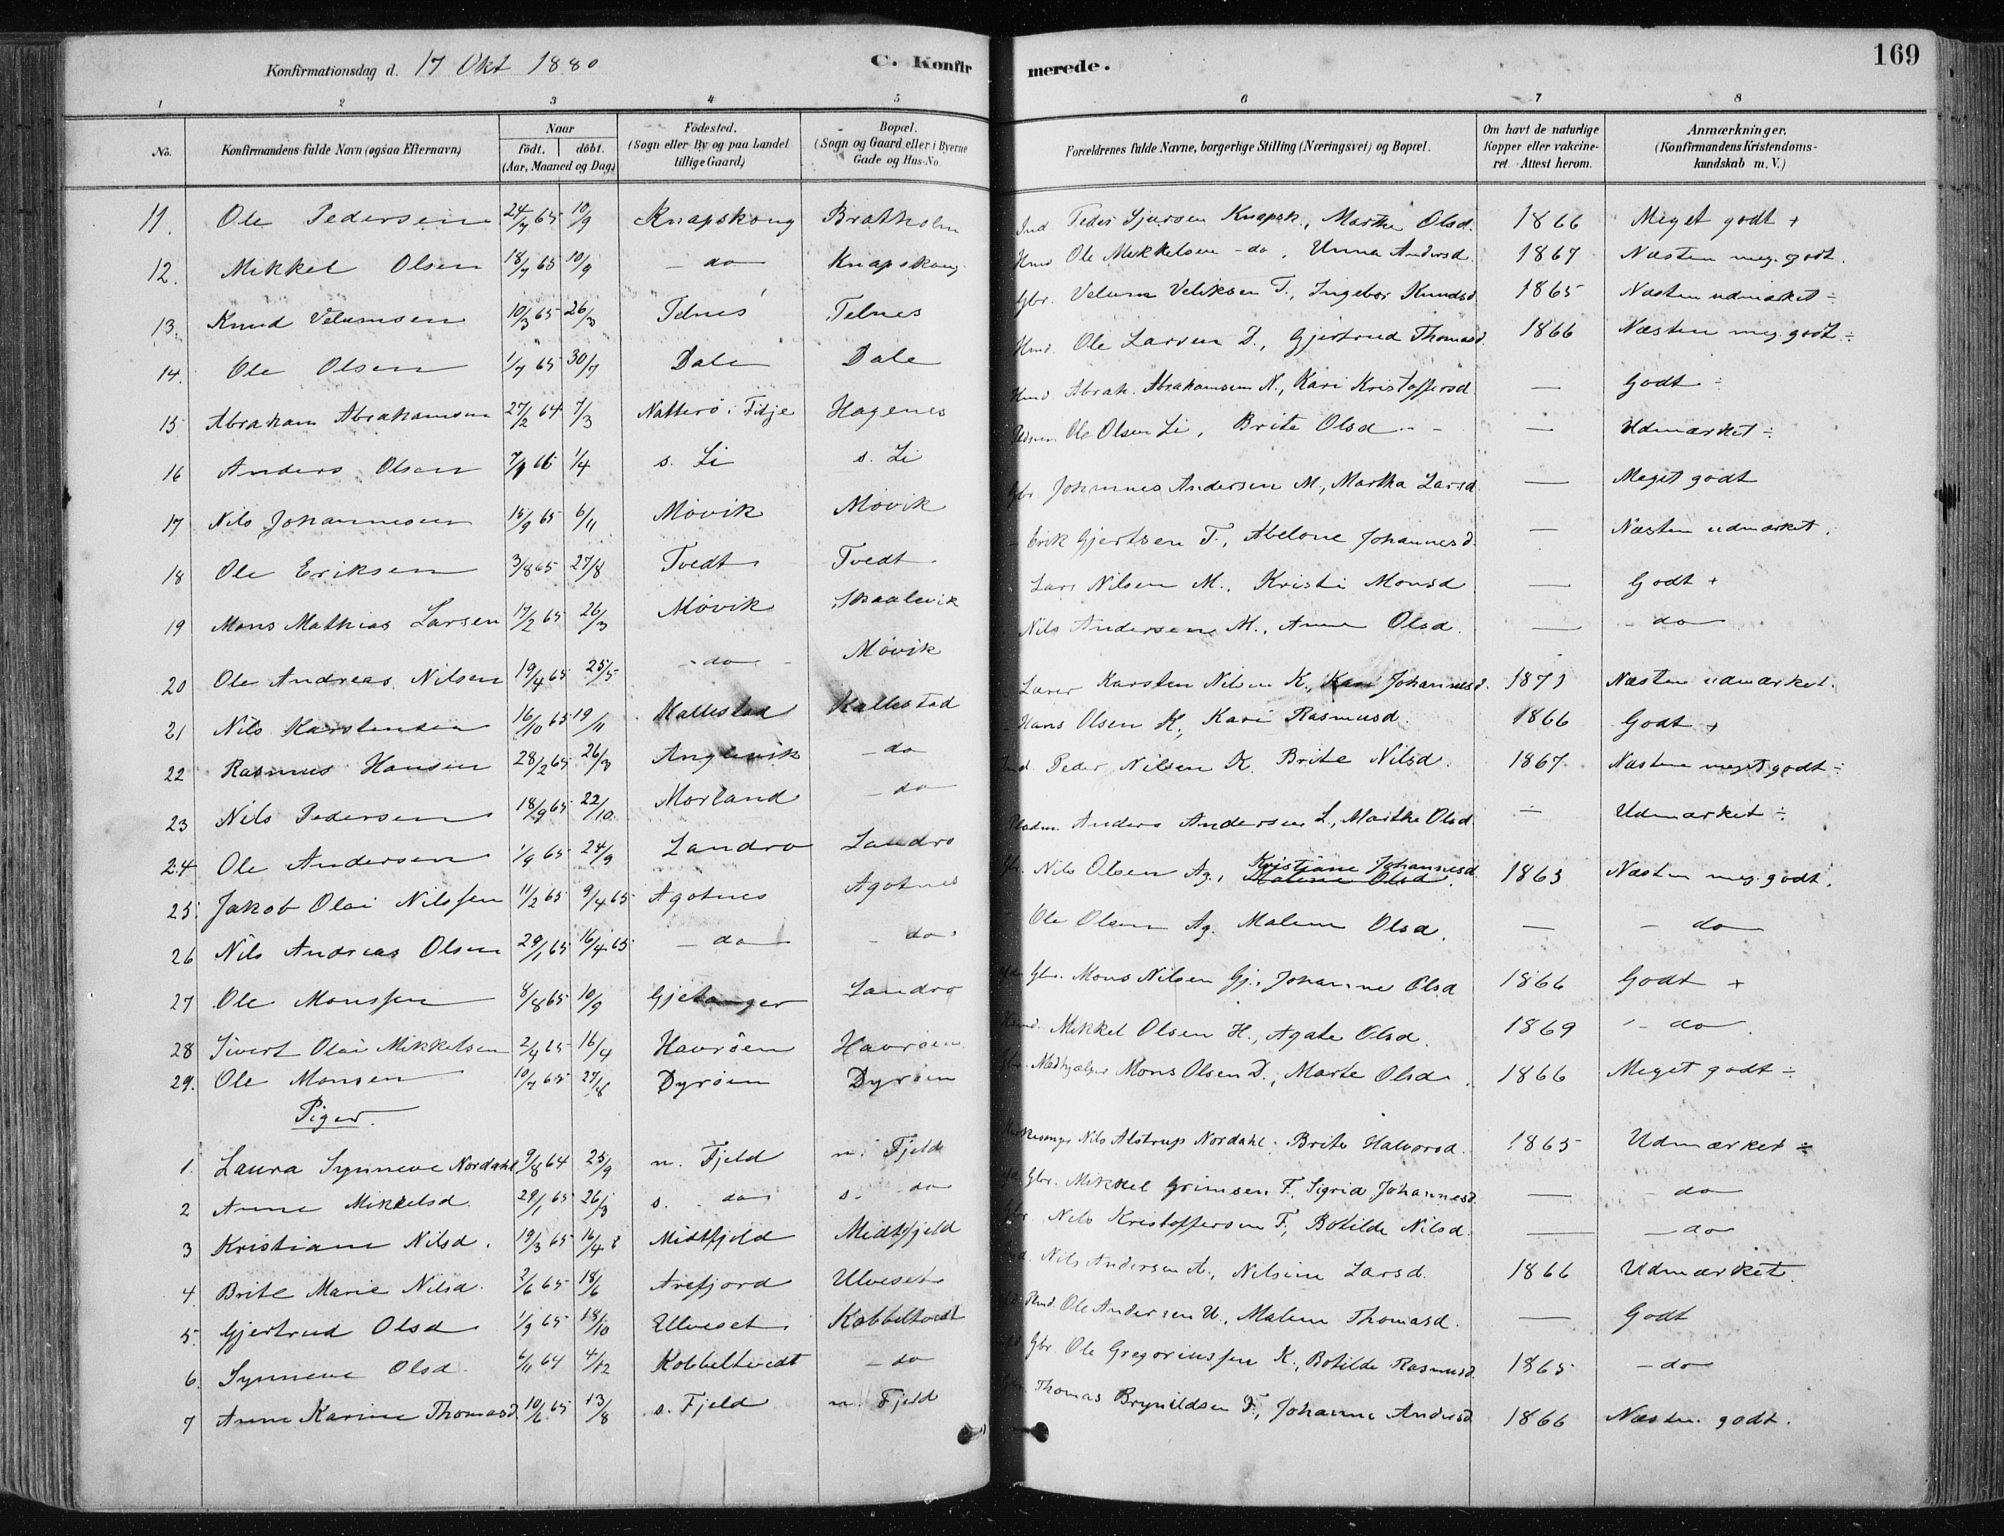 Konfirmationsdag d. 17 Okt 1880 C. Konfirmerede. 169
1 2 3 4 5 6 7 8
No. Konfirmandens fulde Navn (ogsaa Efternavn) Naar födt. döbt. (Aar, Maaned og Dag) Födested. (Sogn eller By og paa Landet tillige Gaard) Bopæl. (Sogn og Gaard eller i Byerne Gade og Hus-No. Forældrenes fulde Navne, borgerlige Stilling (Næringsvei) og Bopæl. Om havt de naturlige Kopper eller vakcineret. Attest herom. Anmærkninger. (Konfirmandens Kristendomskundskab m. V.)
11. Ole Pedersen 24/7 65 10/9 Knapskoug Bratholm Ind Peder Sjursen Knapsk., Marthe Olsd. 1866 Meget godt +
12. Mikkel Olsen 18/7 65 10/9 - do Knapskoug Hmd Ole Mikkelsen - do, Unna Andersd. 1867 Næsten meg. godt.
13. Knud Velumsen 10/3 65 26/3 Telnes Telnes Gbr. Velum Veliksen T., Ingebor Knudsd 1865 Næsten udmærket ÷
14. Ole Olsen 1/7 65 30/7 Dale Dale Hmd. Ole Larsen D., Gjertrud Thomasd. 1866 Næsten meg. godt ÷
15 Abraham Abrahamsen 27/2 64 7/3 Natterö i Fitje Hagenes Hmd Abrah. Abrahamsen N., Kari Kristoffersd — Godt ÷
16 Anders Olsen 7/1 66 1/4 s. Li s. Li Ole Olsen Li, Brite Olsd — Udmærket ÷
17 Nils Johannesen 15/9 65 6/11 Movik Movik Gbr Johannes Andersen M., Martha Larsd. — Meget godt
18 Ole Eriksen 3/8 65 27/8 Tvedt Tvedt - Erik Gjertsen T., Abelone Johannesd. — Næsten udmærket.
19 Mons Mathias Larsen 17/2 65 26/3 Movik Skaalevik Lars Nilsen M., Kristi Monsd — Godt +
20 Ole Andreas Nilsen 19/4 65 25/5 - do - Movik Nils Andersen M., Anne Olsd. — - do
21 Nils Karstensen 16/10 65 19/11 Kallestad Kallestad Lærer Karsten Nilsen K., Kari Johannesd. 1871 Næsten udmærket.
22 Rasmus Hansen 28/2 65 26/3 Anglevik - do Hans Olsen K, Kari Rasmusd. 1866 Godt +
23 Nils Pedersen 18/9 65 22/10 Morland - do Ind. Peder Nilsen K. Brite Nilsd. 1867 Næsten meget godt ÷
24 Ole Andersen 1/9 65 24/9 Landro Landro Anders Andersen L., Marthe Olsd. — Udmærket ÷
25. Jakob Olai Nilssen 11/2 65 9/4 65 Agotnes Agotnes Gbr. Nils Olsen Ag., Kristiane Johannesd. Malene Olsd. 1865 Næsten meg. godt.
26 Nils Andreas Olsen 29/1 65 16/4 65 - do - do Ole Olsen Ag. Malene Olsd. — - do
27 Ole Monssen 8/8 65 10/9 Gjetanger Landro Gbr. Mons Nilsen Gj., Johanne Olsd 1866 Godt +
28 Sivert Olai Mikkelsen 2/4 65 16/4 Havröen Havröen Hmd. Mikkel Olsen H., Agate Olsd. 1869 - do.
29. Ole Monsen 10/7 65 27/8 Dyröen Dyröen Gbr. Medhjælper Mons Olsen D., Marte Olsd. 1866 Meget godt ÷
Piger.
1. Laura Synneve Nordahl 9/8 64 25/9 n. Fjeld n. Fjeld Kirkesanger Nils Alstrup Nordahl. Brite Halvorsd. 1865 Udmærket ÷
2 Anne Mikkelsd. 29/1 65 26/3 s. do s. do Gbr. Mikkel Grimsen F., Sigrid Johannesd. — - do
3 Kristiane Nilsd. 19/3 65 16/4 Midtfjeld Midtfjeld Gbr Nils Kristoffersen F., Botilde Nilsd. — - do
4. Brite Marie Nilsd. 2/6 65 18/6 Arefjord Ulveset Ind Nils Andersen A., Nilsine Larsd. 1866 Udmærket.
5. Gjertrud Olsd 1/9 65 15/10 Ulveset Kobbeltvedt Hmd. Ole Andersen U., Malene Thomasd. — Godt
6. Synneve Olsd. 6/11 64 4/12 Kobbeltvedt - do Gbr Ole Gregoriussen K., Botilde Rasmusd. 1865 - do
7 Anne Karine Thomasd 10/6 65 13/8 s. Fjeld n. Fjeld Thomas Brynildsen F., Johanne Andersd 1866 Næsten godt.